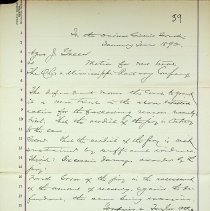 39
In the Circuit Court,
January Term 1890.
J.
vs Motion for new trial.
The Ohio & Mississippi Railway Company.
The defendant moves the Court to grant
a new trial in the above entitled
cause for the following reasons, namely:
First. That the verdict of the jury is contrary
to the law.
Second. That the verdict of the jury is not
sustained by sufficient evidence.
Third. Excessive damages awarded by the
jury.
Fourth. Error of the jury in the assessment
of the amount of recovery, against the de-
fendant, the same being excessive.